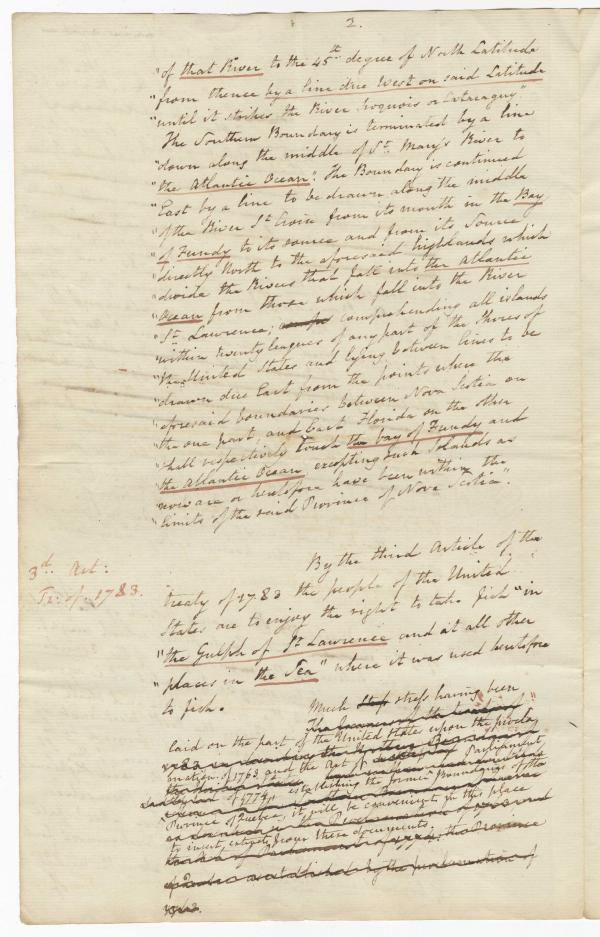 2.
"of that River to the 45th degree of North Latitude
"from thence by a line due West on said Latitude
"until it strikes the River Iroquois or Cataraguy"
The Southern Boundary is terminated by a line
"down along the middle of St. Mary's River to
"the Atlantic Ocean". The Boundary is continued
"East by a line to be drawn along the middle
"of the River St. Croix from its mouth in the Bay
"of Fundy to its source and from its Source
"directly North to the aforesaid highlands which
"divide the Rivers that fall into the Atlantic
"Ocean from those which fall into the River
"St. Lawrence; comprehending all islands
"within twenty leagues of any part of the Shores of
"the United States and lying between lines to be
"drawn due East from the points where the
"aforesaid boundaries between Nova Scotia on
"the one part, and East Florida on the other
"shall respectively touch the bay of Fundy and
"the Atlantic Ocean excepting such Islands as
"now are or heretofore have been within the
"limits of the said Province of Nova Scotia".
3d. Art:
Tr: of 1783.
By the third Article of the
treaty of 1783 the people of the United
States are to enjoy the right to take fish "in
"the Gulph of St Lawrence and at all other
"places in the Sea" where it was used heretofore
to fish.
Much stress having been
laid on the part of the United States upon the procla
mation of 1763 and the Act of Parliament
of 1774, establishing the former Boundary of the
Province of Quebec, it will be convenient in this place
to insert extracts from these documents.